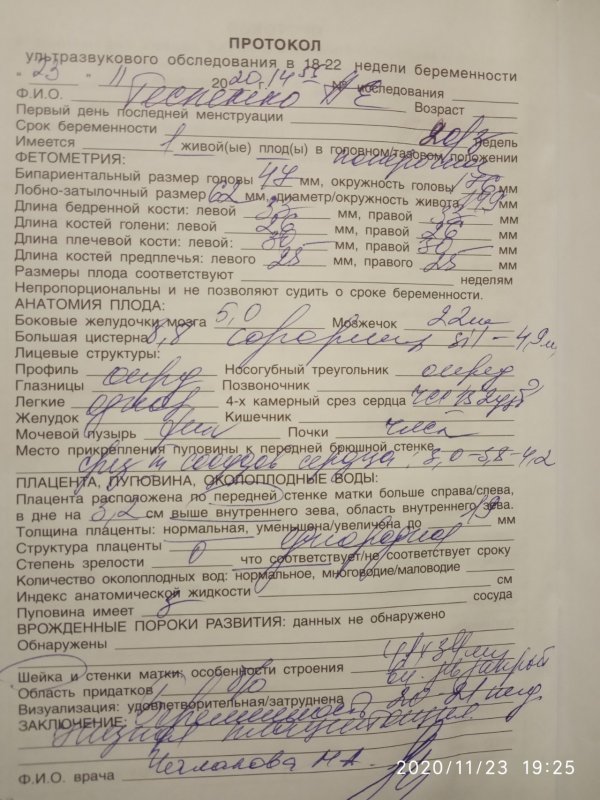 ПРОТОКОЛ
ультразвукового обследования в 18-22 недели беременности
" 23 " 11 2020 г. 14 55 № исследования
Ф.И.О. Возраст
Первый день последней менструации
Срок беременности недель
Имеется 1 живой(ые) плод(ы) в головном/тазовом положении
ФЕТОМЕТРИЯ:
Бипариентальный размер головы 47 мм, окружность головы 176 мм
Лобно-затылочный размер 62 мм, диаметр/окружность живота 149 мм
Длина бедренной кости: левой 33 мм, правой 33 мм
Длина костей голени: левой 26 мм, правой 26 мм
Длина плечевой кости: левой: 30 мм, правой 30 мм
Длина костей предплечья: левого 25 мм, правого 25 мм
Размеры плода соответствуют неделям
Непропорциональны и не позволяют судить о сроке беременности.
АНАТОМИЯ ПЛОДА:
Боковые желудочки мозга 5,0 Мозжечок 22мм
Большая цистерна
Лицевые структуры:
Профиль опред Носогубный треугольник опред
Глазницы Позвоночник
Легкие однор 4-х камерный срез сердца
Желудок Кишечник
Мочевой пузырь Почки
Место прикрепления пуповины к передней брюшной стенке
срез 3х сосудов сердца: 3,0-3,8-4,2
ПЛАЦЕНТА, ПУПОВИНА, ОКОЛОПЛОДНЫЕ ВОДЫ:
Плацента расположена по передней стенке матки больше справа/слева,
в дне на 3,2 см выше внутреннего зева, область внутреннего зева.
Толщина плаценты: нормальная, уменьшена/увеличена до 19 мм
Структура плаценты однородная
Степень зрелости 0 что соответствует/не соответствует сроку
Количество околоплодных вод: нормальное, многоводие/маловодие
Индекс анатомической жидкости см
Пуповина имеет 3 сосуда
ВРОЖДЕННЫЕ ПОРОКИ РАЗВИТИЯ: данных не обнаружено
Обнаружены
Шейка и стенки матки: особенности строения
Область придатков
Визуализация: удовлетворительная/затруднена
ЗАКЛЮЧЕНИЕ: Беременность 20-21 нед
Низкая плацентация
Ф.И.О. врача
2020/11/23 19:25